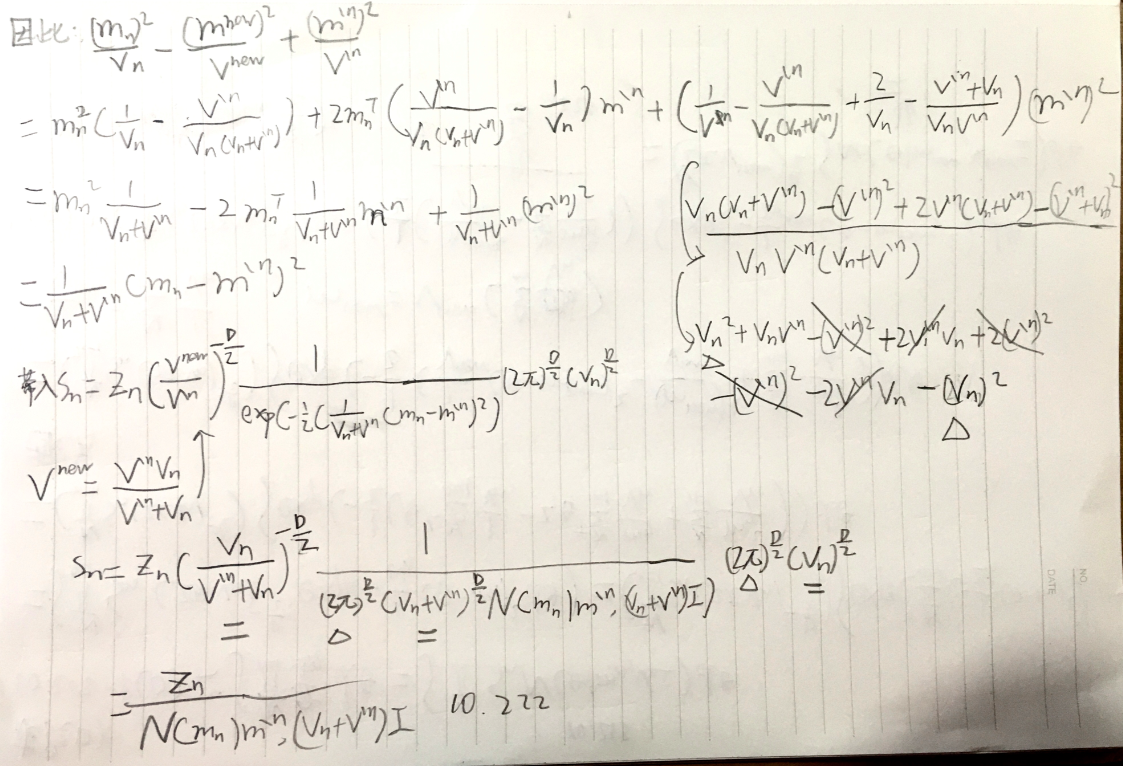 因此: \frac{(m_n)^2}{v_n} - \frac{(m^{new})^2}{v^{new}} + \frac{(m^{\backslash n})^2}{v^{\backslash n}}
= m_n^2 (\frac{1}{v_n} - \frac{v^{\backslash n}}{v_n(v_n+v^{\backslash n})}) + 2m_n^T (\frac{v^{\backslash n}}{v_n(v_n+v^{\backslash n})} - \frac{1}{v_n}) m^{\backslash n} + (\frac{1}{v^{\backslash n}} - \frac{v^{\backslash n}}{v_n(v_n+v^{\backslash n})} + \frac{2}{v_n} - \frac{v^{\backslash n}+v_n}{v_n v^{\backslash n}}) (m^{\backslash n})^2
= m_n^2 \frac{1}{v_n+v^{\backslash n}} - 2 m_n^T \frac{1}{v_n+v^{\backslash n}} m^{\backslash n} + \frac{1}{v_n+v^{\backslash n}} (m^{\backslash n})^2
\frac{v_n(v_n+v^{\backslash n}) - (v^{\backslash n})^2 + 2v^{\backslash n}(v_n+v^{\backslash n}) - (v^{\backslash n}+v_n)^2}{v_n v^{\backslash n}(v_n+v^{\backslash n})}
= \frac{1}{v_n+v^{\backslash n}} (m_n - m^{\backslash n})^2
v_n^2 + v_n v^{\backslash n} - (v^{\backslash n})^2 + 2v^{\backslash n} v_n + 2(v^{\backslash n})^2
△
- (v^{\backslash n})^2 - 2v^{\backslash n} v_n - (v_n)^2
△
带入 S_n = Z_n (\frac{v^{new}}{v^{\backslash n}})^{-\frac{D}{2}} \frac{1}{exp(-\frac{1}{2}(\frac{1}{v_n+v^{\backslash n}}(m_n-m^{\backslash n})^2))} (2π)^{\frac{D}{2}} (v_n)^{\frac{D}{2}}
v^{new} = \frac{v^{\backslash n} v_n}{v^{\backslash n}+v_n}
S_n = Z_n (\frac{v_n}{v^{\backslash n}+v_n})^{-\frac{D}{2}} \frac{1}{(2π)^{\frac{D}{2}} (v_n+v^{\backslash n})^{\frac{D}{2}} N(m_n|m^{\backslash n}, (v_n+v^{\backslash n})I)} (2π)^{\frac{D}{2}} (v_n)^{\frac{D}{2}}
= △ = △ =
= \frac{Z_n}{N(m_n|m^{\backslash n}, (v_n+v^{\backslash n})I} 10.222
NO.
DATE